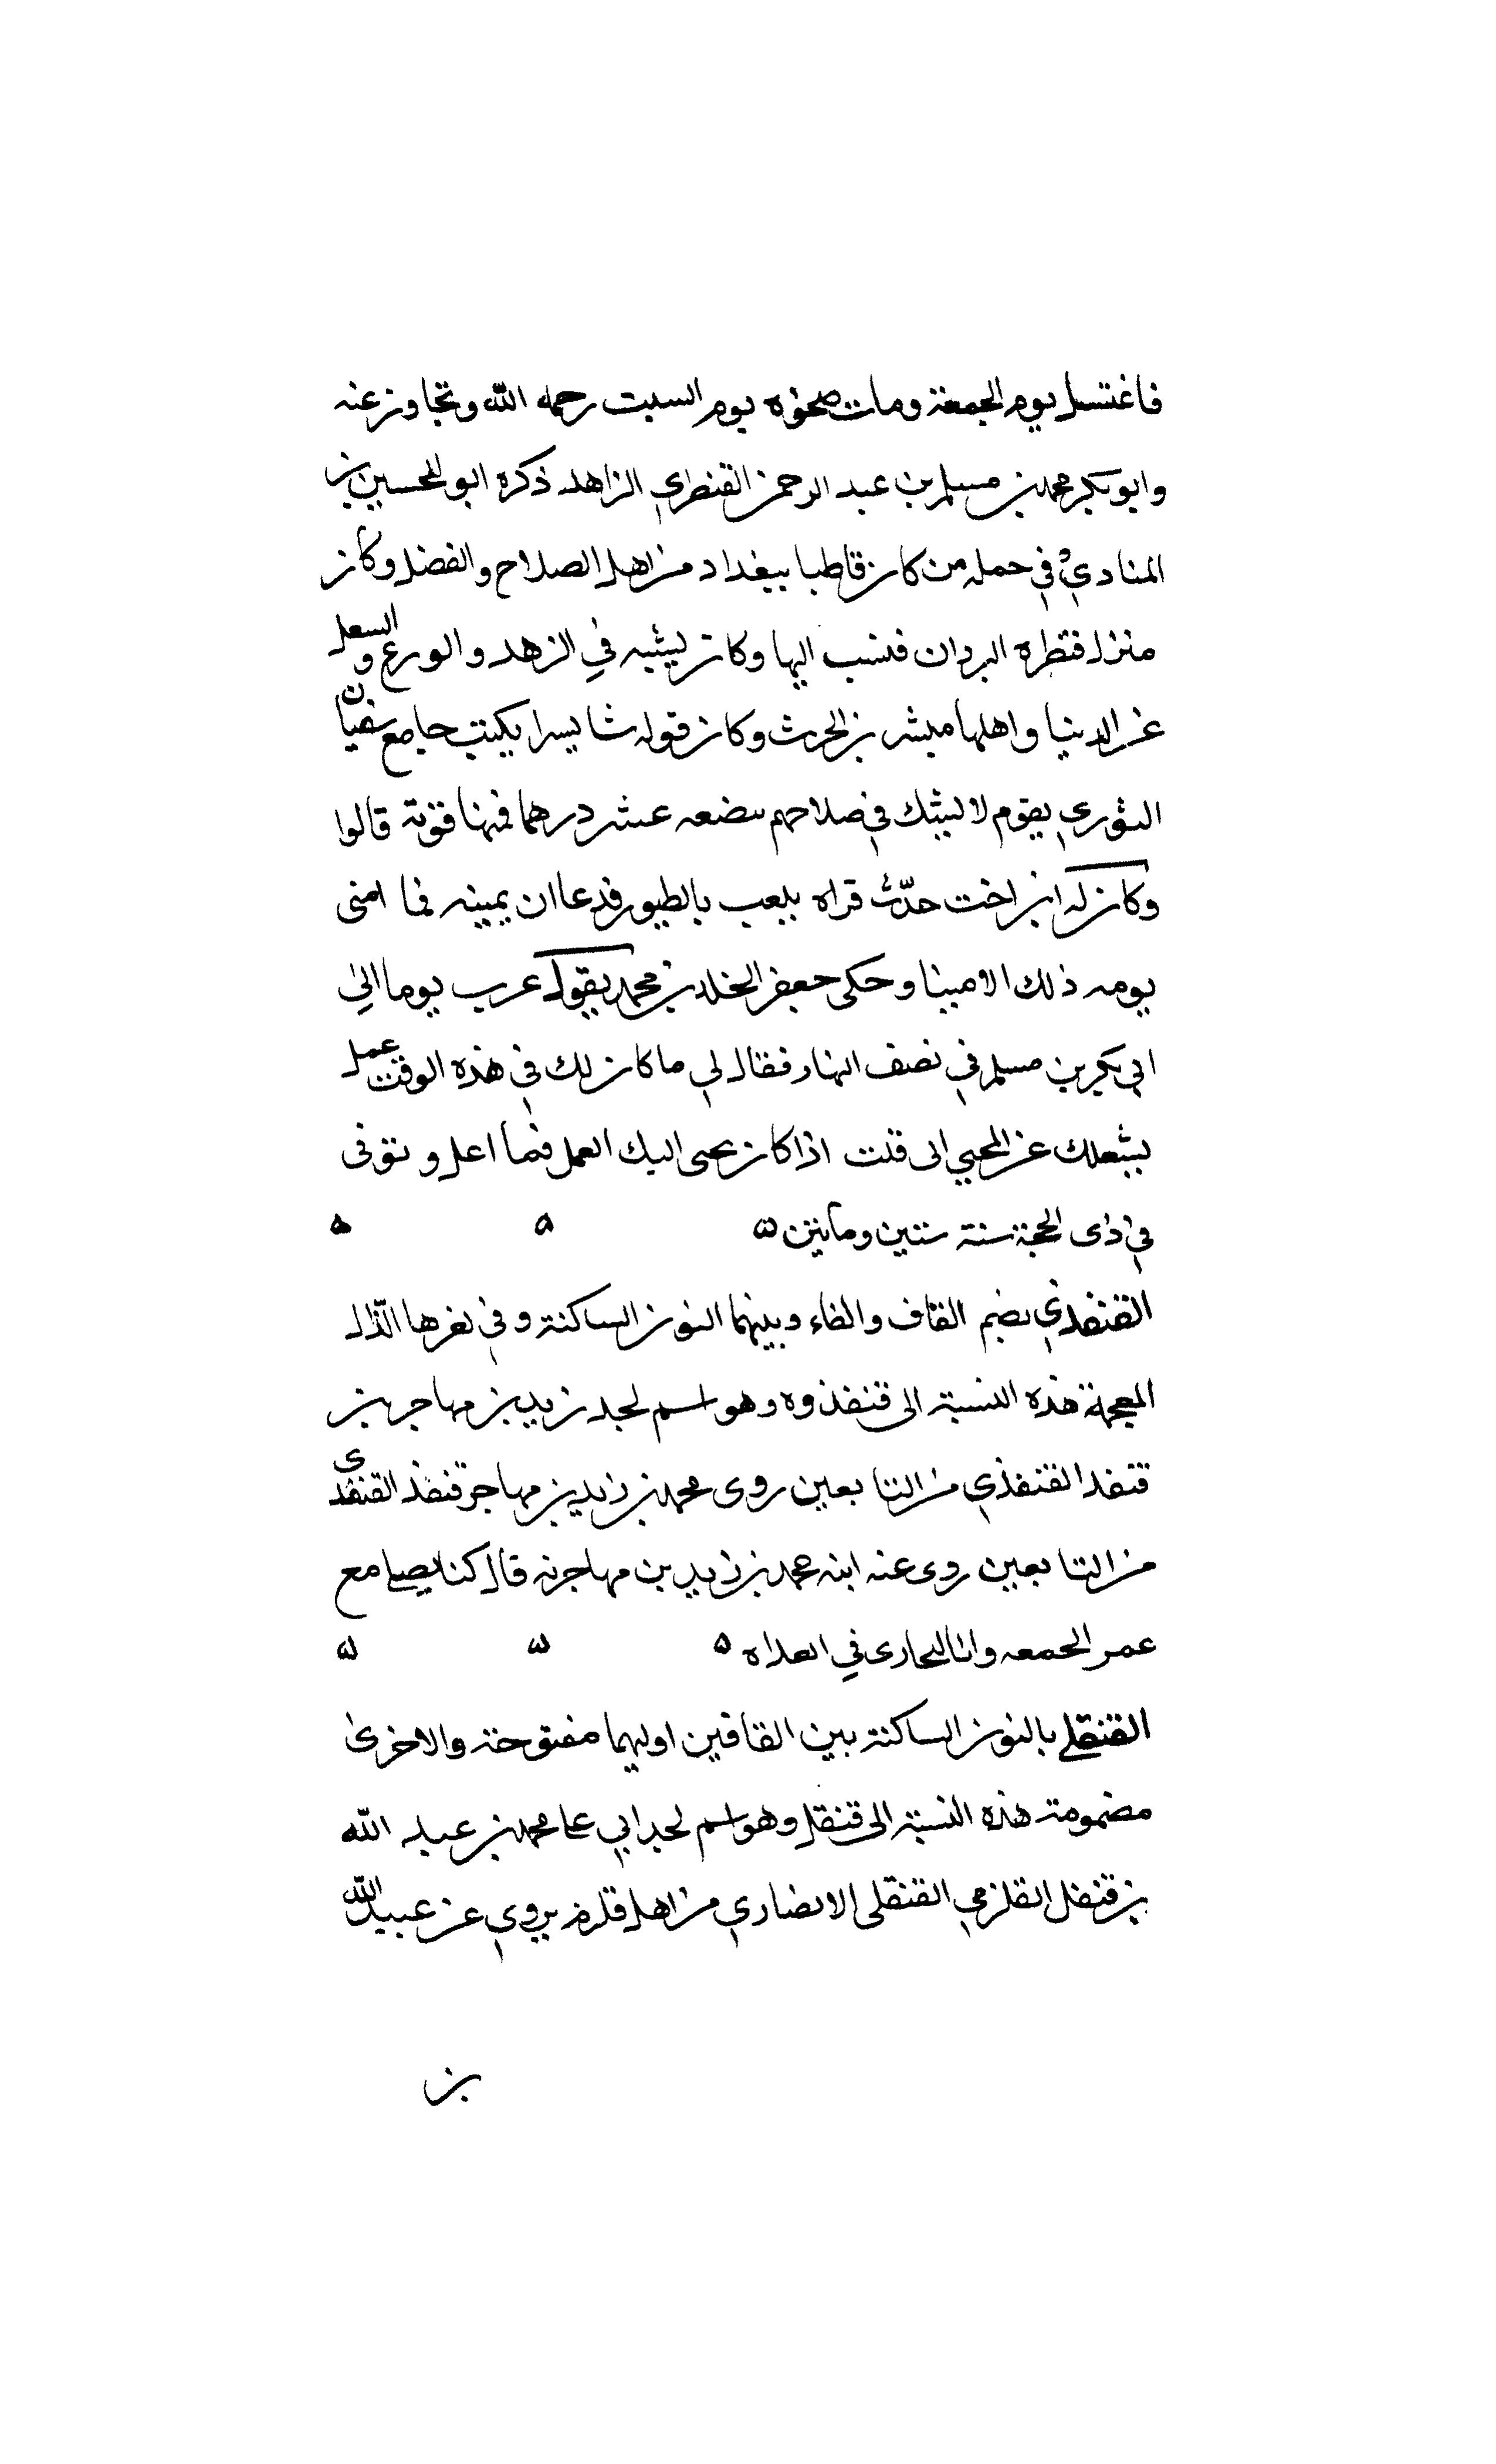 فاغتسل يوم الجمعة ومات صحوه يوم السبت رحمه الله وتجاوز عنه
وابو بكر محمد بن مسلم بن عبد الرحمن القنطري الزاهد ذكره ابو الحسين بن
المنادي في حمله من كان قاطبا ببغداد من اهل الصلاح والفضل وكان
منزل قنطره البردان فنسب اليها وكان يشبه في الزهد والورع و السعل
عن الدنيا واهلها مبشر بن الحرث وكان قوله شا يسرا يكتب جامع سفيان
الثوري يقوم لا يشك في صلاحهم ببضعه عشر درهما فمنها قوته قالوا
وكان له ابن اخت حدّث قراه يلعب بالطيور فدعا ان يميته فما امنى
يومه ذلك الا ميتا وحكى جعفر الخلد بن محمد يقول عرب يوما الى
ابي بكر بن مسلم في نصف النهار فقال لي ما كان لك في هذه الوقت عمل
يشعلك عن المجي الى قلت اذا كان يحى اليك العمل فما اعل وتوفى
في ذى الحجة سنة ستين ومائتين ه ه ه
القنفذي بضم القاف والفاء وبينهما النون الساكنة وفي اخرها الذّال
المعجمة هذه النسبة الى قنفذ وه وهو اسم لجد زيد بن مهاجر بن
قنفذ القنفذي من التابعين روى محمد بن زيد بن مهاجر قنفذ القنفذى
من التابعين روى عنه ابنه محمد بن زيد بن مهاجر نه قال كنا يصلى مع
عمر الجمعه وانا البحارى في الغداه ه ه ه
القنقلي بالنون الساكنة بين القافين اوليهما مفتوحة والاخرى
مضمومة هذه النسبة الى قنقل وهو اسم لجد ابي على محمد بن عبد الله
بن قنفل القلزمي القنقلى الانصاري من اهل قلزم يروي عن عبيد الله
بن